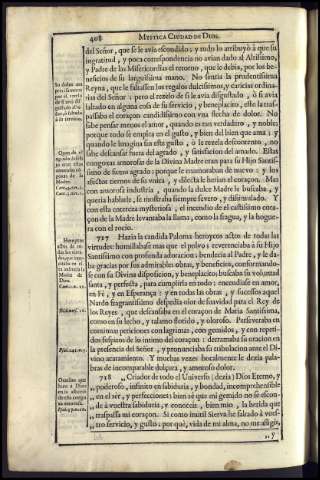 408
MYSTICA CIUDAD DE DIOS.
del Señor, que se le avia escondido; y todo lo atribuyò à que su
ingratitud, y poca correspondencia no avian dado al Altissimo,
y Padre de las Misericordias el retorno, que le debia, por los be-
neficios de su larguissima mano. No sentia la prudentissima
Reyna, que le faltassen los regalos dulcissimos, y caricias ordina-
rias del Señor: pero el rezelo de si le avia disgustado, ò si avia
faltado en alguna cosa de su servicio, y beneplacito, este la tras-
passaba el coraçon candidissimo con una flecha de dolor. No
sabe pensar menos el amor, quando es tan verdadero, y noble;
porque todo se emplea en el gusto, y bien del bien que ama; y
quando le imagina sin este gusto, ò le rezela descontento, no
sabe descansar fuera del agrado, y satisfacion del amado. Estas
congojas amorosas de la Divina Madre eran para su Hijo Santissi-
mo de sumo agrado; porque le enamoraban de nuevo; y los
afectos tiernos de su unica, y dilecta le herian el coraçon. Mas
con amorosa industria, quando la dulce Madre le buscaba, y
queria hablarle, se mostraba siempre severo, y dissimulado. Y
con esta entereza mysteriosa, el incendio de el castissimo cora-
çon de la Madre levantaba la llama, como la fragua, y la hogue-
ra con el rocio.
717 Hazia la candida Paloma heroycos actos de todas las
virtudes: humillabase mas que el polvo; reverenciaba à su Hijo
Santissimo con profunda adoracion; bendecia al Padre, y le da-
ba gracias por sus admirables obras, y beneficios, conformando-
se con su Divina disposicion, y beneplacito; buscaba su voluntad
santa, y perfecta, para cumplirla en todo; encendiase en amor,
en Fè, y en Esperança: y en todas las obras, y sucessos aquel
Nardo fragrantissimo despedia olor de suavidad para el Rey de
los Reyes, que descansaba en el coraçon de Maria Santissima,
como en su lecho, y talamo florido, y oloroso. Perseveraba en
continuas peticiones con lagrimas, con gemidos, y con repeti-
dos suspiros de lo intimo del coraçon: derramaba su oracion en
la presencia del Señor, y pronunciaba su tribulacion ante el Di-
vino acatamiento. Y muchas vezes vocalmente le dezia palabras
de incomparable dulçura, y amoroso dolor.
718 „Criador de todo el Universo (dezia) Dios Eterno, y
„poderoso, infinito en sabiduria, y bondad, incomprehensible
„en el sèr, y perfecciones; bien sè que mi gemido no se escon-
„de à vuestra sabiduria, y conoceis, bien mio, la herida que
„traspassa mi coraçon. Si como inutil Sierva he faltado à vues-
„tro servicio, y gusto; por què, vida de mi alma, no me afligis,
„y